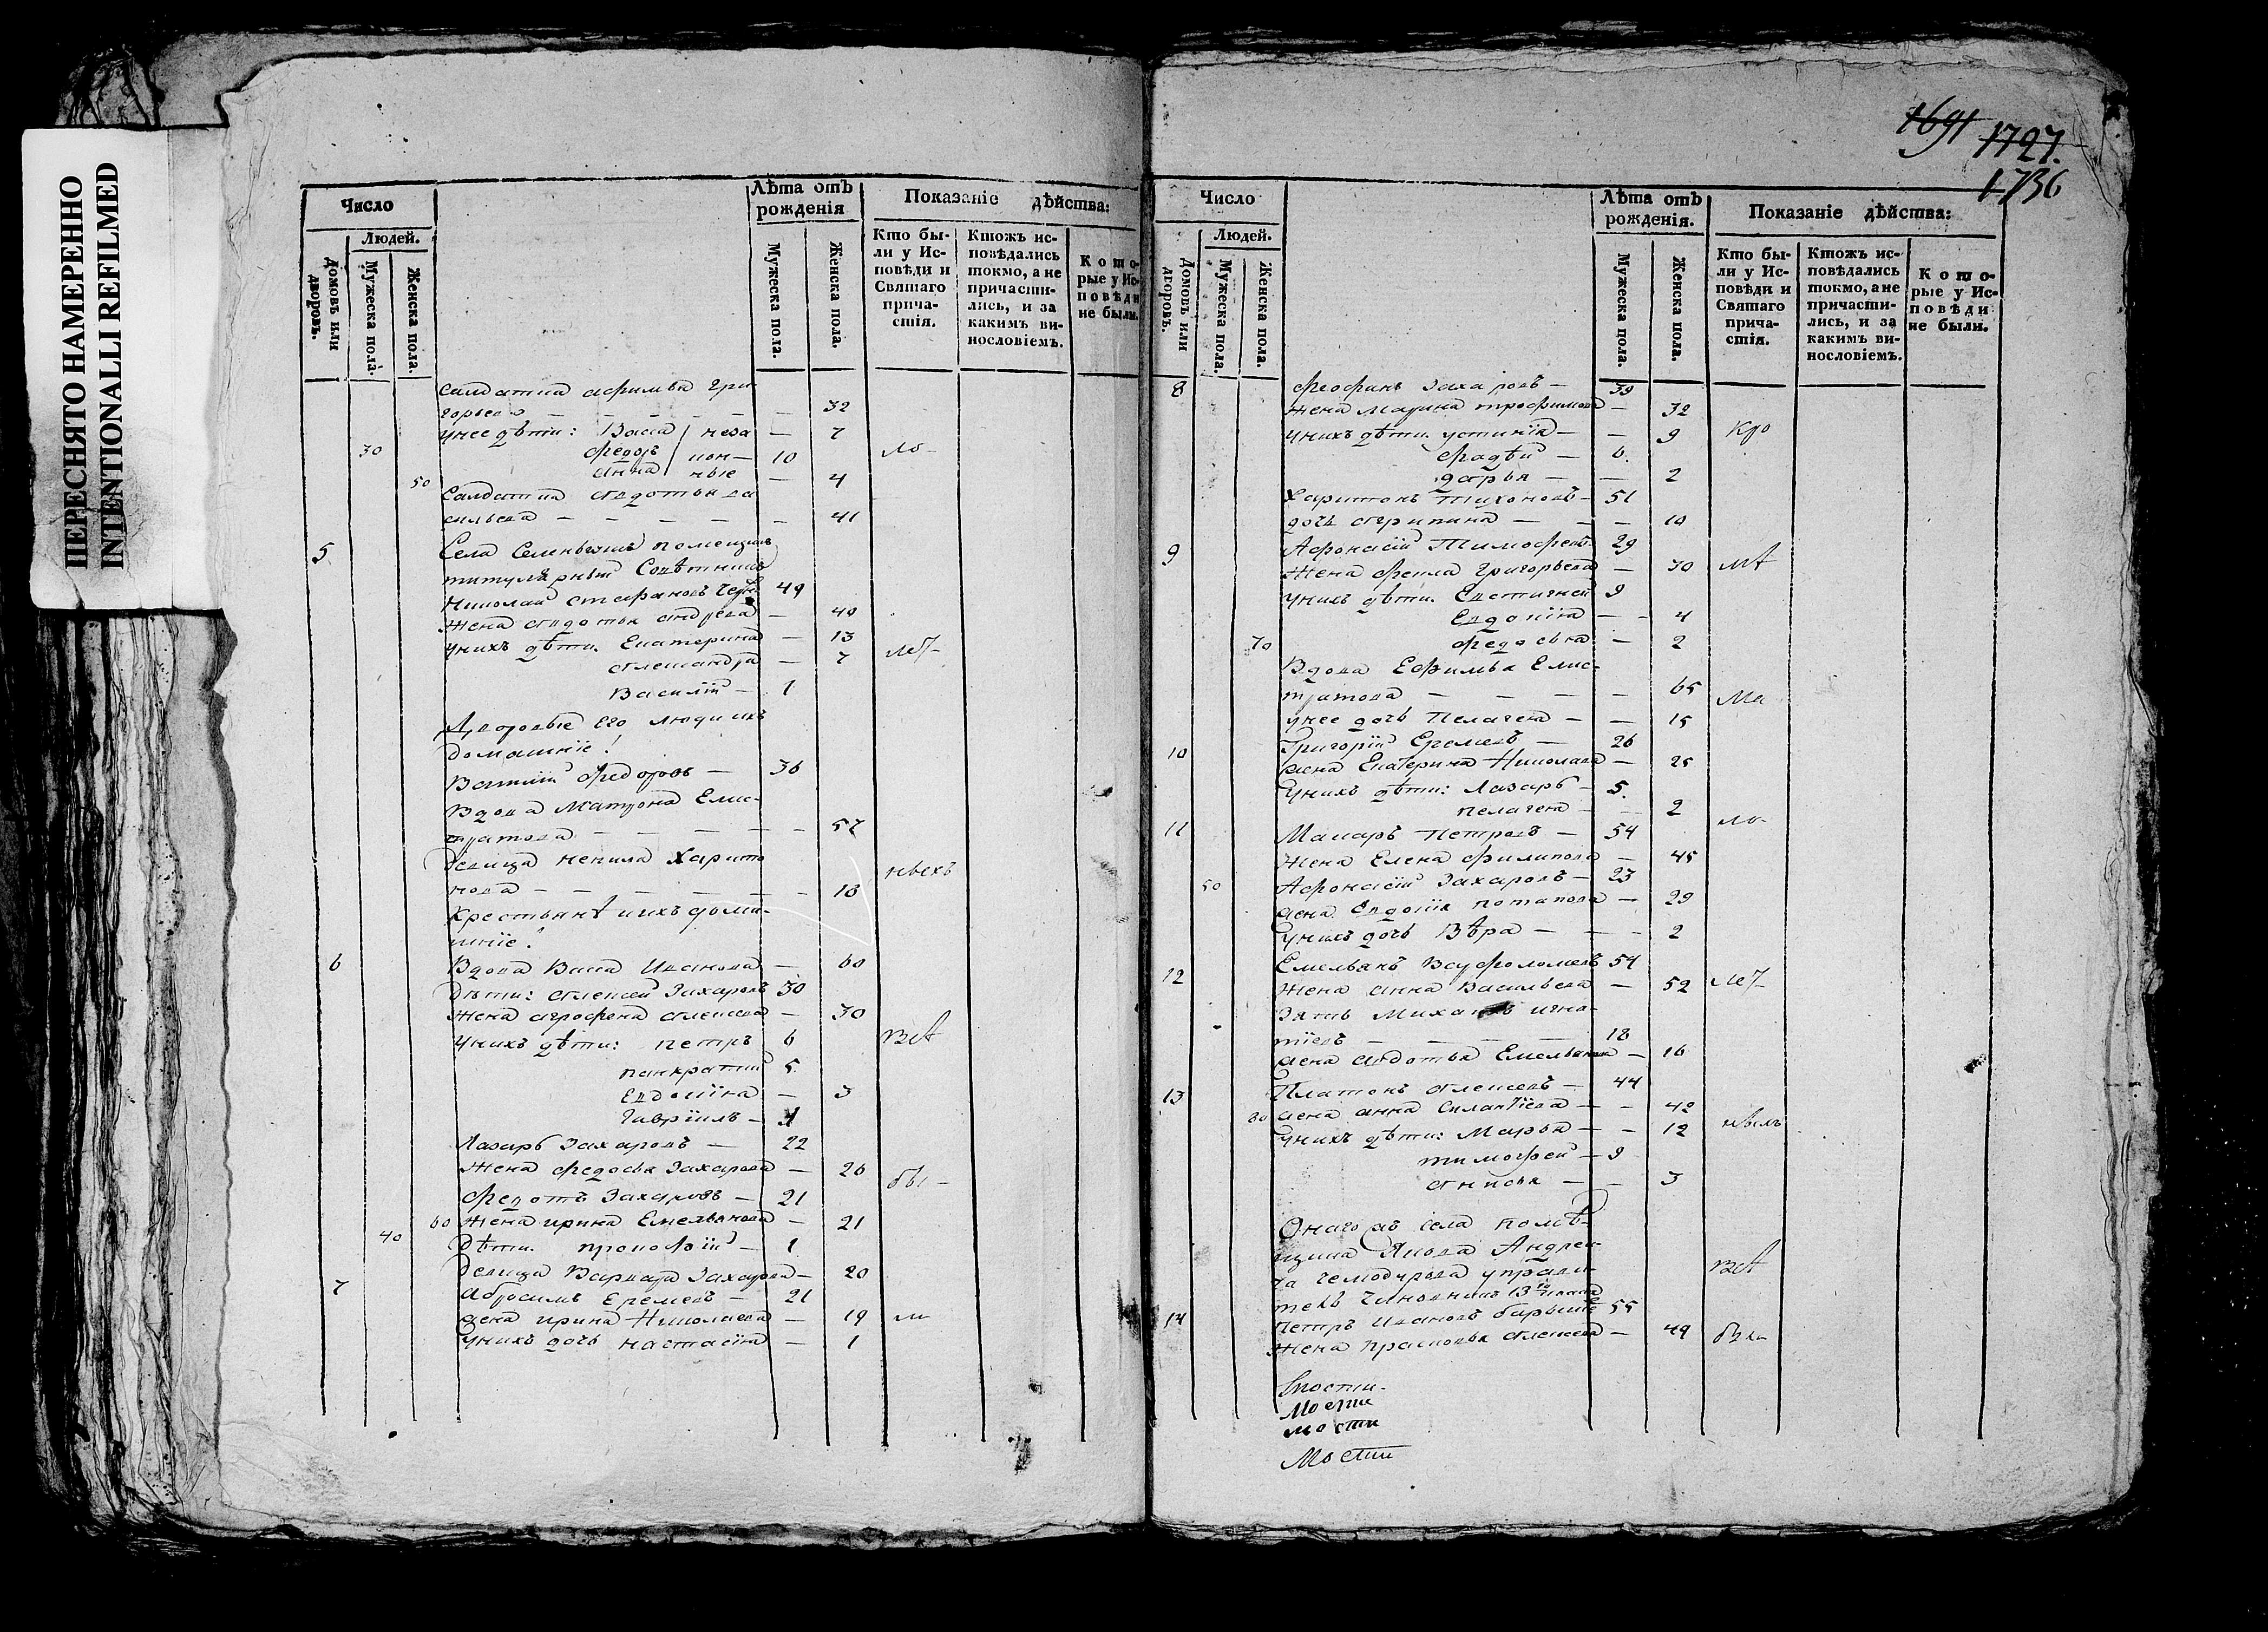 ПЕРЕСНЯТО НАМЕРЕННО
INTENTIONALLI REFILMED
Число
Людей.
Домовъ или дворовъ.
Мужеска пола.
Женска пола.
Лѣта отъ рожденія
Мужеска пола.
Женска пола.
Показаніе дѣйства:
Кто бы-
ли у Ис-
повѣди и
Святаго
прича-
стія.
Ктожъ ис-
повѣдались
токмо, а не
причасти-
лись, и за
какимъ ви-
нословіемъ.
Кото-
рые у Ис-
повѣди
не были.
салдатка афимья Гри
горьева — — — — — 32
унее дѣти: Васса неза — 7
30 федоръ кон— 10
50 анна ные — 4
Салдатка авдотья ва
сильева — — — — — 41
5 Села помещикъ
титулярный Совѣтникъ
Николай стефановъ 49
Жена авдотья андреева — 40
унихъ дѣти. Екатерина — 13
александра — 7
Василій — 1
Дворовые Его люди ихъ
домашніе!
Василій Федоровъ — 36
Вдова Матрона Елис-
тратова — — — — 57
Девица ненила Харито
нова — — — — — 18
Крестьянѣ иихъ дома-
шніе:
6 Вдова Васса Иванова — 60
Дѣти: алексей Захаровъ 30
Жена агрофена алексеева — 30
унихъ дѣти: петръ 6
панкратій 5
Евдокіка — 3
Гавріилъ — 1
Лазарь Захаровъ — 22
Жена федосья Захарова — 26
Федотъ Захаровъ — 21
60 Жена ирина Емельянова — 21
40 Дѣти. прокофій — 1
Девица Варвара Захарова — 20
7 Абросимъ Еремеевъ — 21
жена ирина Николаева — 19
унихъ дочь настасіка — 1
1691 1727.
1736
Число
Людей.
Домовъ или дворовъ.
Мужеска пола.
Женска пола.
Лѣта отъ рожденія.
Мужеска пола.
Женска пола.
Показаніе дѣйства:
Кто бы-
ли у Ис-
повѣди и
Святаго
прича-
стія.
Ктожъ ис-
повѣдались
токмо, а не
причасти-
лись, и за
какимъ ви-
нословіемъ.
Кото-
рые у Ис-
повѣди
не были.
8 феофанъ Захаровъ — 39
Жена Марина трофимова — 32
унихъ дѣти. устинія — — 9
фадѣй — 6
дарья — — 2
Харитонъ Тихоновъ — 51
дочь агрипина — — — 10
9 Афонасій Тимофеевъ 29
Жена фекла Григорьева — 30
унихъ дѣти. Евстигней 9
Евдокіка — — 4
70 федоська — 2
Вдова Ефимья Елис-
тратова — — — — 65
унее дочь Пелагея — — 15
10 Григорій Еремеевъ — 26
жена Екатерина Николаева — 25
унихъ дѣти: Лазарь — 5
пелагея — 2
11 Макаръ Петровъ — 54
Жена Елена филипова — 45
50 Афонасій Захаровъ — 23
жена Евдокія потапова — 29
унихъ дочь Вѣра — — — 2
12 Емельянъ Варфоломеевъ 54
Жена анна Васильева — 52
Зять Михаилъ игна-
тіевъ — — — — 18
жена авдотья Емельянова — 16
13 Платонъ алексеевъ — 44
80 жена анна Силантіева — — 42
унихъ дѣти: Марья — — 12
тимофей — 9
анисья — — 3
Онагожъ села помѣ-
щика Якова Андреи-
ча управи-
тель Чиновникъ 13го класа
14 Петръ Ивановъ 55
Жена прасковья алексеева — 49
мости
мости
Мости